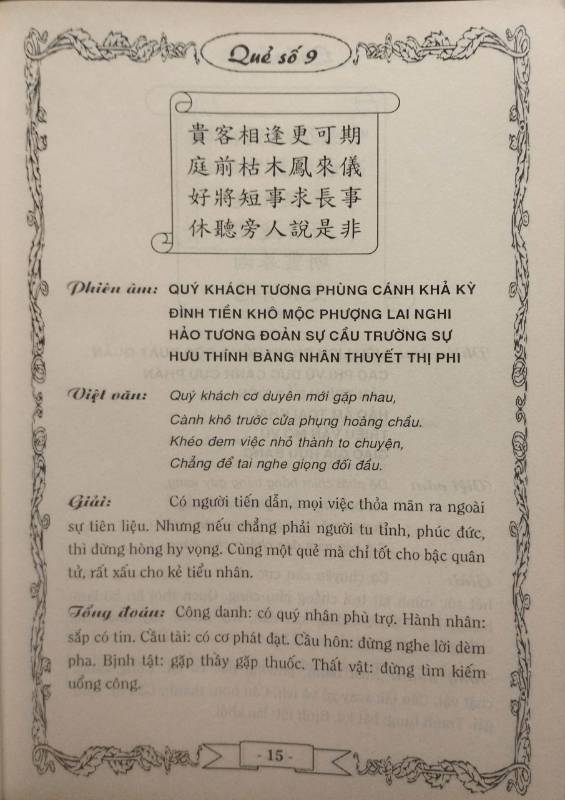 Quẻ số 9
貴客相逢更可期
庭前枯木鳳來儀
好將短事求長事
休聽旁人說是非
Phiên âm: QUÝ KHÁCH TƯƠNG PHÙNG CÁNH KHẢ KỲ
ĐÌNH TIỀN KHÔ MỘC PHƯỢNG LAI NGHI
HẢO TƯƠNG ĐOẢN SỰ CẦU TRƯỜNG SỰ
HƯU THÍNH BÀNG NHÂN THUYẾT THỊ PHI
Việt văn: Quý khách cơ duyên mới gặp nhau,
Cành khô trước cửa phụng hoàng chầu.
Khéo đem việc nhỏ thành to chuyện,
Chẳng để tai nghe giọng đối đầu.
Giải: Có người tiến dẫn, mọi việc thỏa mãn ra ngoài
sự tiên liệu. Nhưng nếu chẳng phải người tu tỉnh, phúc đức,
thì đừng hòng hy vọng. Cùng một quẻ mà chỉ tốt cho bậc quân
tử, rất xấu cho kẻ tiểu nhân.
Tổng đoán: Công danh: có quý nhân phù trợ. Hành nhân:
sắp có tin. Cầu tài: có cơ phát đạt. Cầu hôn: đừng nghe lời dèm
pha. Bịnh tật: gặp thầy gặp thuốc. Thất vật: đừng tìm kiếm
uổng công.
- 15 -